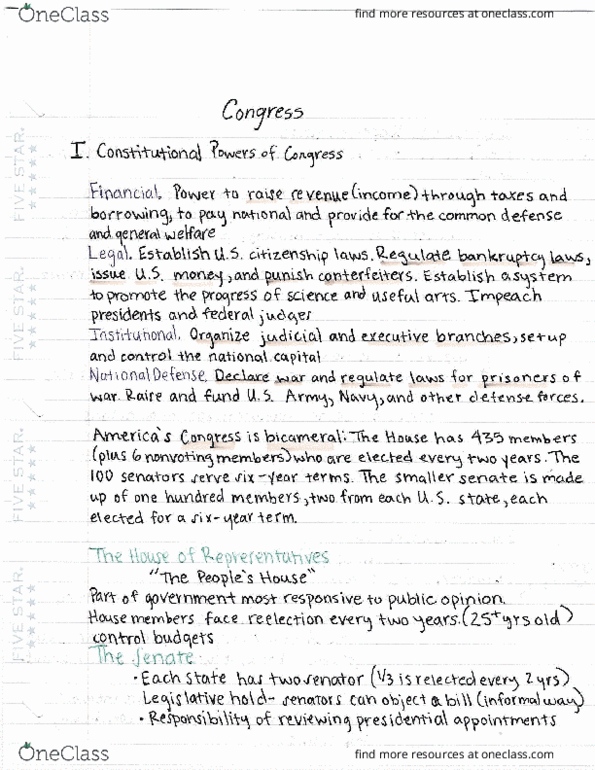 OneClass
find more resources at oneclass.com
Congress
I. Constitutional Powers of Congress
Financial. Power to raise revenue (income) through taxes and
borrowing, to pay national and provide for the common defense
and general welfare
Legal. Establish U.S. citizenship laws. Regulate bankruptcy laws,
issue U.S. money, and punish conterfeiters. Establish a system
to promote the progress of science and useful arts. Impeach
presidents and federal judges
Institutional. Organize judicial and executive branches, set up
and control the national capital
National Defense. Declare war and regulate laws for prisoners of
war. Raire and fund U.S. Army, Navy, and other defense forces.
America's Congress is bicameral: The House has 435 members
(plus 6 nonvoting members) who are elected every two years. The
100 senators serve six-year terms. The smaller senate is made
up of one hundred members, two from each U.S. state, each
elected for a six-year term.
The House of Representatives
"The People's House"
Part of government most responsive to public opinion.
House members face reelection every two years. (25+ yrs old)
control budgets
The Senate
• Each state has two senator (1/3 is relected every 2 yrs)
Legislative hold- senators can object a bill (informal way)
• Responsibility of reviewing presidential appointments
FIVE STAR.
FIVE STAR.
FIVE STAR.
FIVE STAR.
OneClass
find more resources at oneclass.com